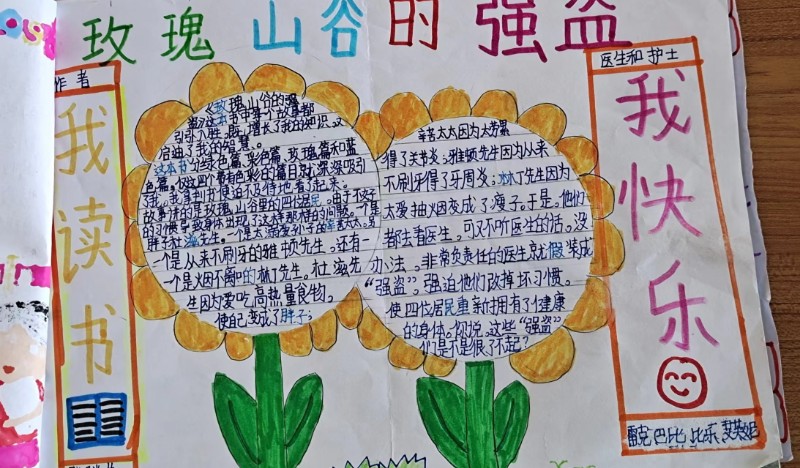 玫瑰山谷的强盗
作者
我读书
《玫瑰山谷的强
盗》这本书中每个故事都
引人入胜,既增长了我的知识,又
启迪了我的智慧。
这本书分绿色篇、彩色篇、玫瑰篇和蓝
色篇。仅这四个带有色彩的篇目就深深吸引
了我。我拿到书便迫不及待地看了起来。
故事讲的是玫瑰山谷里的四位居民。由于不好
的习惯导致身体出现了这样那样的问题。一个是
胖子杜海先生。一个是太溺爱孙子的辛苦太太。
一个是从来不刷牙的雅顿先生。还有
一个是烟不离口的林丁先生。杜海先
生因为爱吃高热量食物。
使自己变成了胖子;
辛苦太太因为太劳累
得了关节炎;雅顿先生因为从来
不刷牙得了牙周炎;林丁先生因为
太爱抽烟变成了瘦子。于是。他们
都去看医生,可又不听医生的话。没
办法。非常负责任的医生就假装成
“强盗”。强迫他们改掉坏习惯。
使四位居民重新拥有了健康
的身体。你说。这些“强盗”
们是不是很了不起?
医生和护士
我快乐
雷克 巴比 比乐